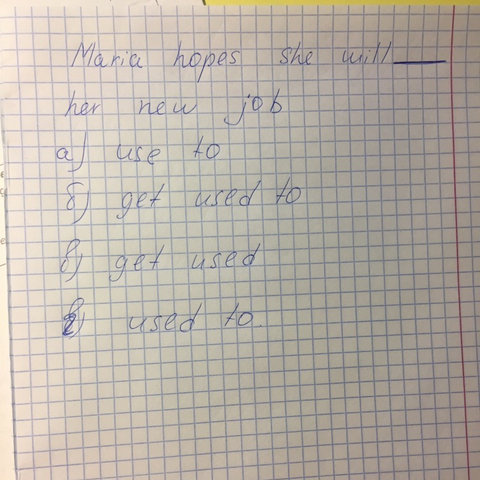 Maria hopes she will____
her new job
а) use to
б) get used to
в) get used
г) used to.